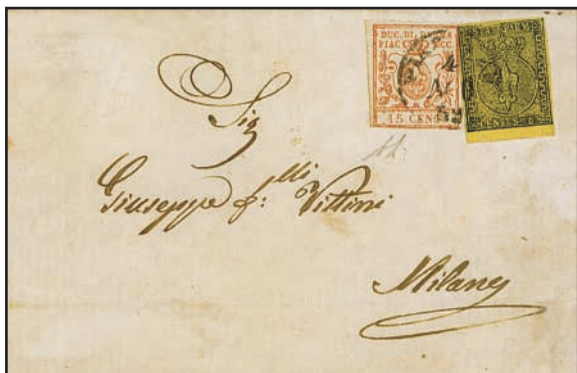 DUC. DI. PARMA
PIAC. ECC.
15 CENT
Sig
Giuseppe f:lli Vittini
Milano